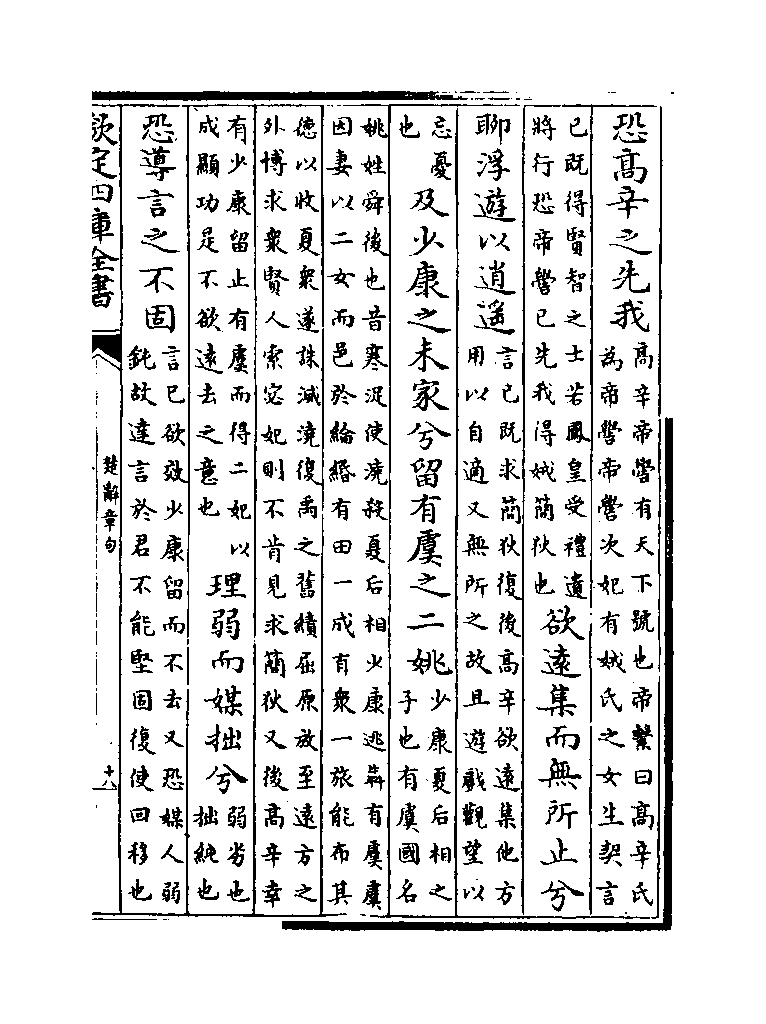 恐髙辛之先我
髙辛帝嚳有天下號也帝繫曰髙辛氏
為帝嚳帝嚳次妃有娀氏之女生契言
已既得賢智之士若鳳皇受禮遺
將行恐帝嚳已先我得娀簡狄也
欲逺集而無所止兮
聊浮遊以逍遥
言已既求簡狄復後髙辛欲逺集他方
用以自適又無所之故且遊戲觀望以
忘憂
也
及少康之未家兮留有虞之二姚
少康夏后相之
子也有虞國名
姚姓舜後也昔寒浞使澆殺夏后相少康逃犇有虞虞
因妻以二女而邑於綸緡有田一成有衆一旅能布其
徳以收夏衆遂誅滅澆復禹之舊績屈原放至逺方之
外博求衆賢人索宓妃則不肯見求簡狄又後髙辛幸
有少康留止有虞而得二妃以
成顯功是不欲逺去之意也
理弱而媒拙兮
弱劣也
拙純也
恐導言之不固
言已欲效少康留而不去又恐媒人弱
鈍故達言於君不能堅固復使回移也
欽定四庫全書
楚辭章句
十八